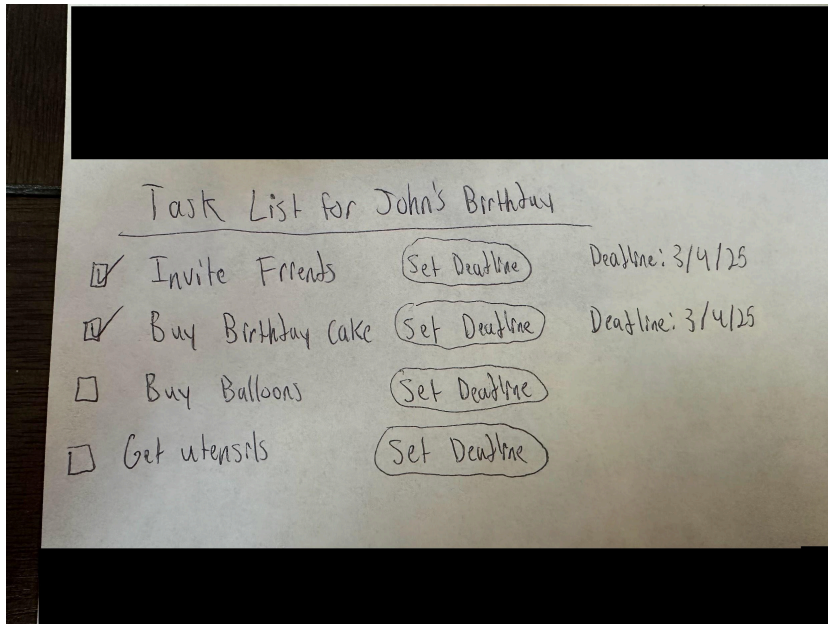 Task List for John's Birthday
Invite Friends Set Deadline Deadline: 3/4/25
Buy Birthday cake Set Deadline Deadline: 3/4/25
Buy Balloons Set Deadline
Get utensils Set Deadline